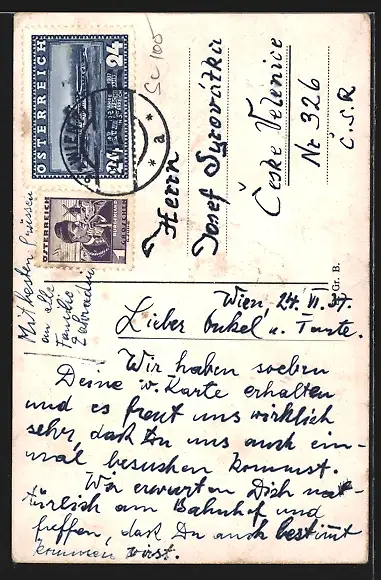 ÖSTERREICH
24
WIEN
* a *
Sc 100
ÖSTERREICH
BURGENLAND
1 GROSCHEN
Herrn
Josef Syrovátka
České Velenice
Nr 326
Č.S.R
Gr. B.
Mit besten Grüssen
an alle
Familie
Wien, 24. VI. 37.
Lieber Onkel u. Tante.
Wir haben soeben
Deine w. Karte erhalten
und es freut uns wirklich
sehr, dass Du uns auch ein-
mal besuchen kommst.
Wir erwarten Dich nat-
türlich am Bahnhof und
hoffen, dass Du auch bestimmt
kommen wirst.